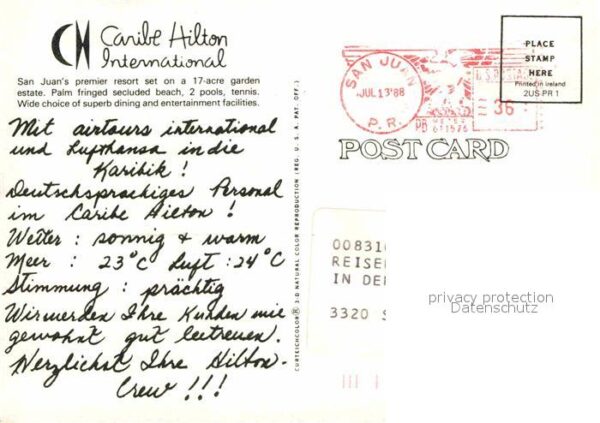 CH Caribe Hilton
International
San Juan's premier resort set on a 17-acre garden
estate. Palm fringed secluded beach, 2 pools, tennis.
Wide choice of superb dining and entertainment facilities.
Mit airtours international
und Lufthansa in die
Karibik!
Deutschsprachiges Personal
im Caribe Hilton!
Wetter: sonnig + warm
Meer: 23°C Luft: 24°C
Stimmung: prächtig
Wir werden Ihre Kunden wie
gewohnt gut betreuen.
Herzlichst Ihre Hilton-
Crew!!!
CURTEICHCOLOR® 3-D NATURAL COLOR REPRODUCTION (REG. U.S.A. PAT. OFF.)
SAN JUAN
JUL 13'88
P.R.
U.S. POSTAGE
36
PB METER
PLACE
STAMP
HERE
Printed in Ireland
2US PR 1
POST CARD
00831
REISE
IN DE
3320 S
privacy protection
Datenschutz